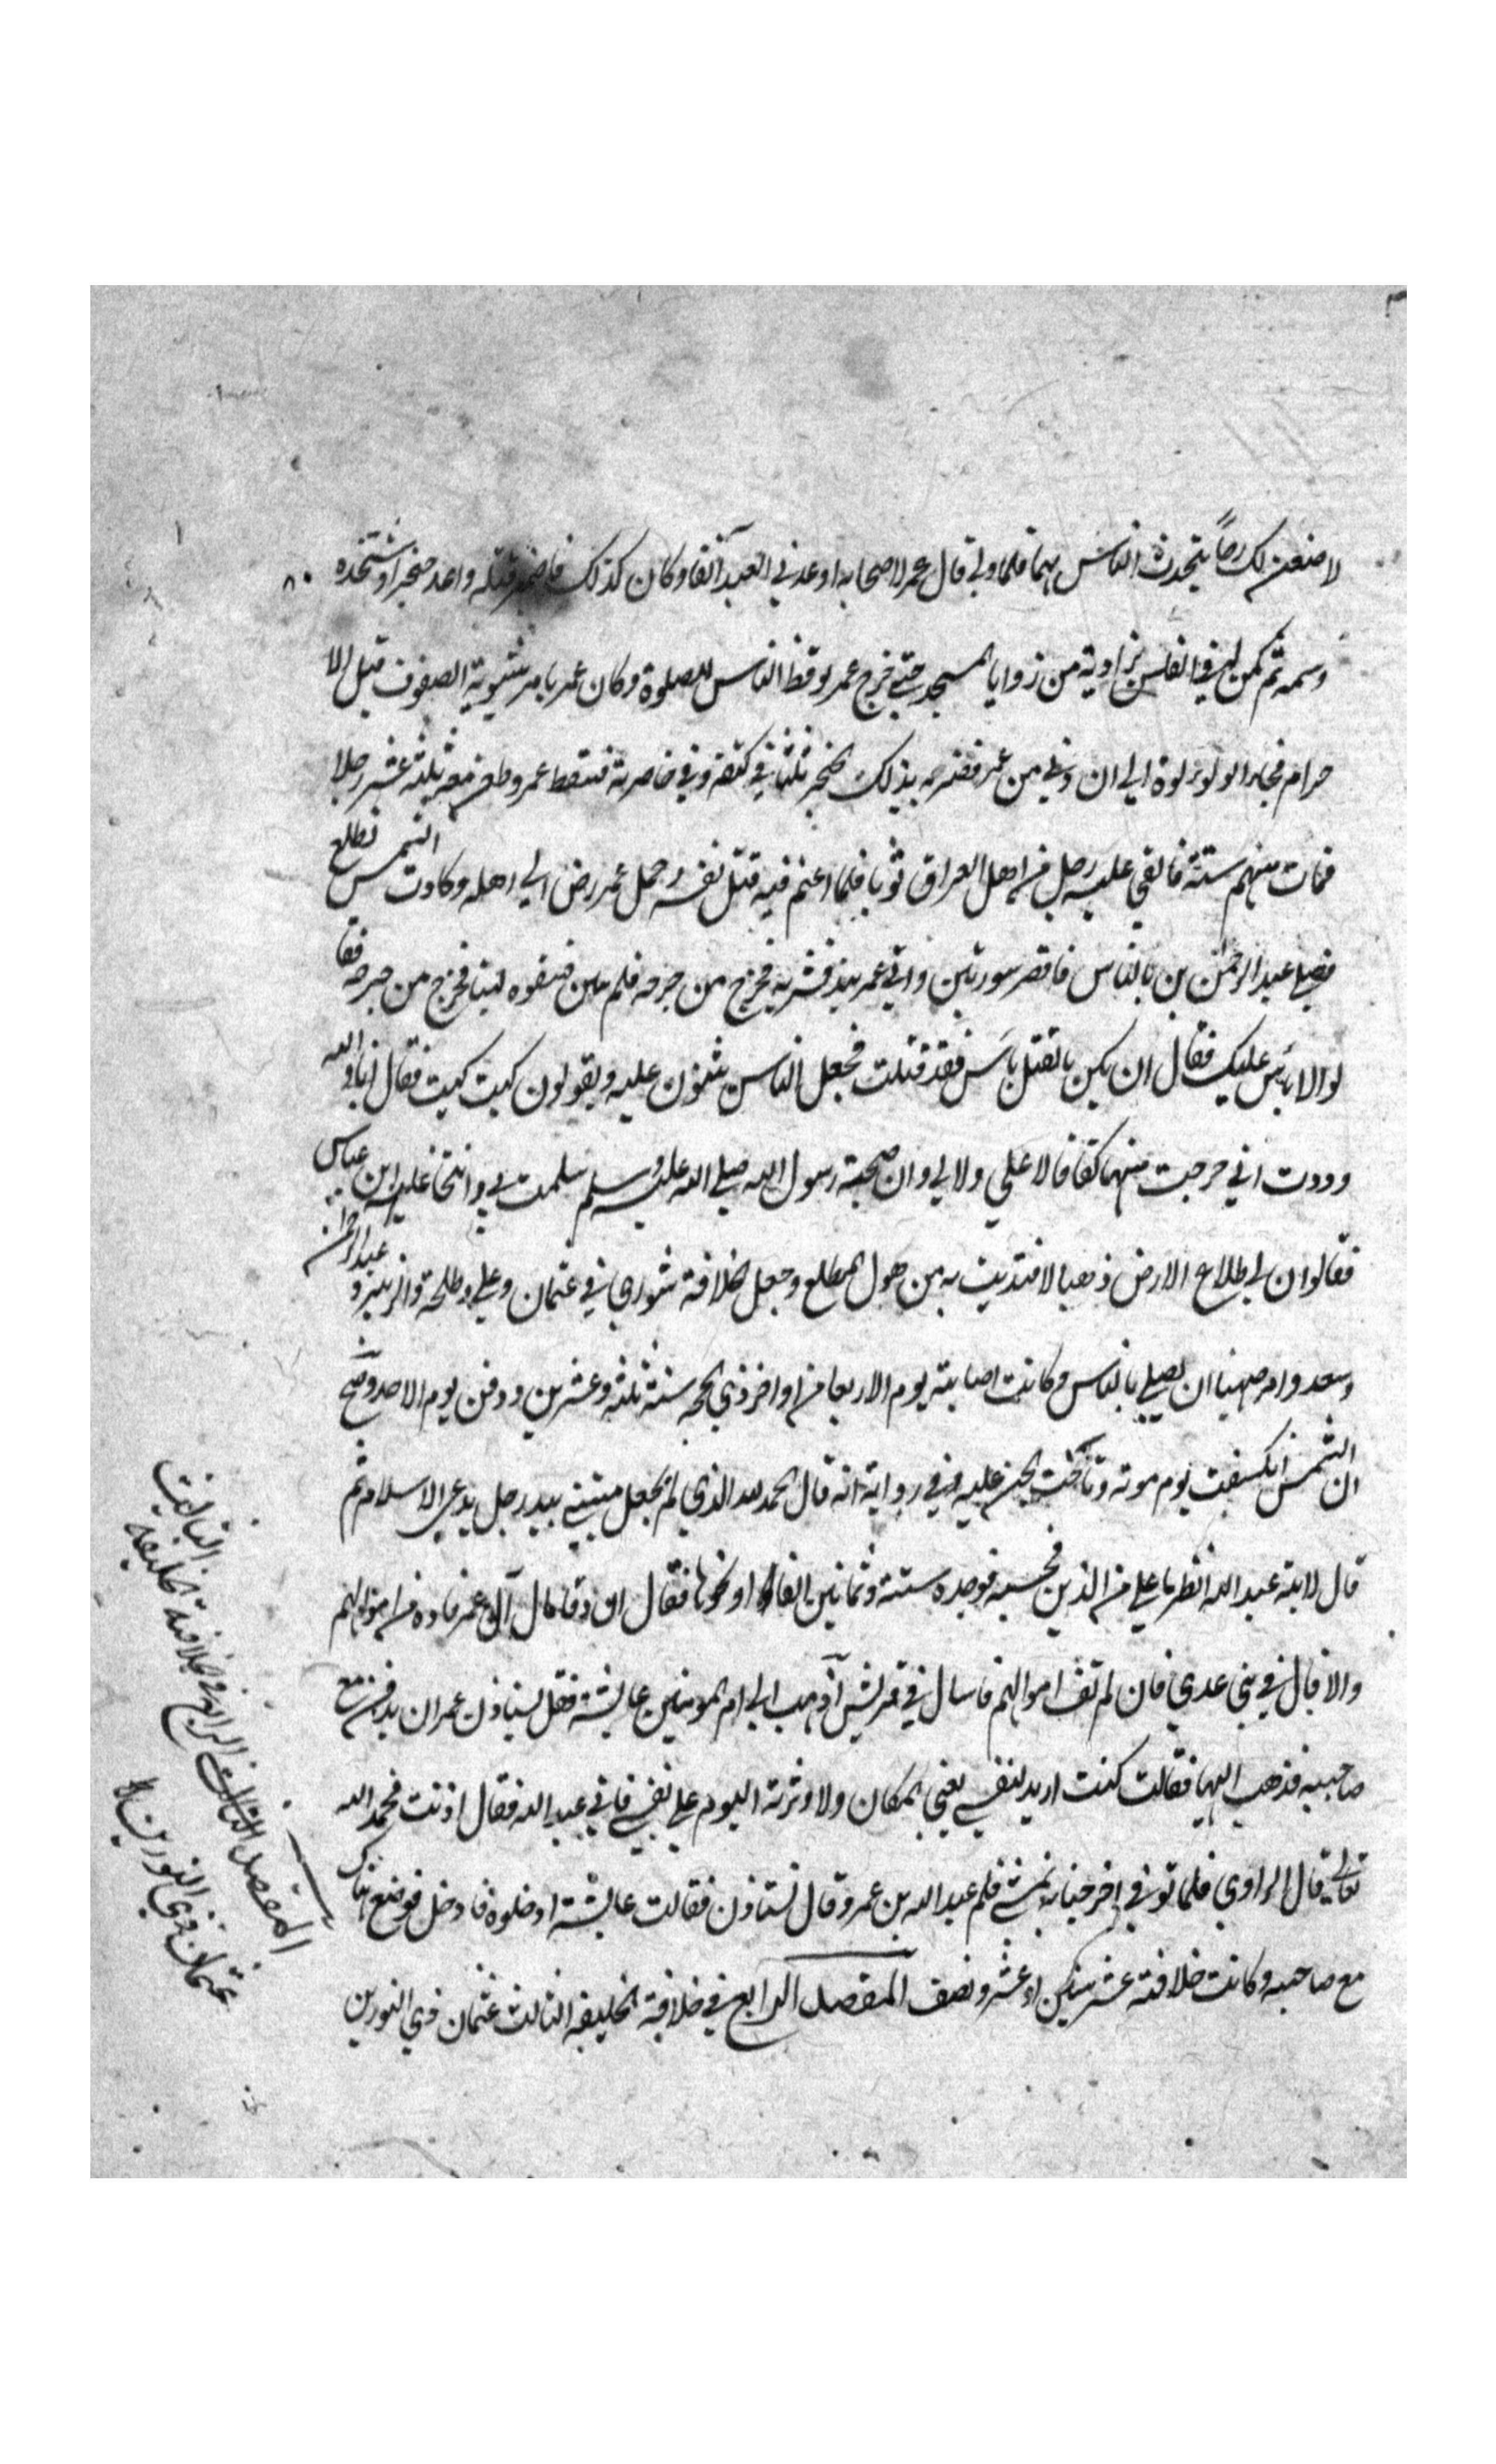 لاصنعن لك رحاً يتحدث الناس بهما فلما ولى قال عمر لاصحابه اوعدني العبد آنفا وكان كذلك فاضمر قتله واعد خنجرا وشحذه
وسمه ثم كمن له في الغلس بزاوية من زوايا المسجد حتى خرج عمر يوقظ الناس للصلوة وكان عمر يامر بتسوية الصفوف قبل الا
حرام فجاء ابو لولوة الى ان دنى من عمر فضربه بذلك الخنجر ثلثا في كتفه وفي خاصرته فسقط عمر وطعن معه ثلثة عشر رجلا
فمات منهم ستة فالقي عليه رجل من اهل العراق ثوبا فلما اغتم فيه قتل نفسه وحمل عمر رض الى اهله وكادت الشمس تطلع
فصلى عبد الرحمن بن بالناس فاقصر سورتين واتي عمر بنبيذ فشربه فخرج من جرحه فلم يتبين فسقوه لبنا فخرج من جرحه فقا
لوا لا بأس عليك فقال ان يكن بالقتل بأس فقد قتلت فجعل الناس يثنون عليه ويقولون كيت كيت فقال اما والله
وددت اني خرجت منها كفافا لا علي ولا لي وان صحبة رسول الله صلى الله عليه وسلم سلمت لي واثنى عليه ابن عباس
فقال لو ان لي طلاع الارض ذهبا لافتديت به من هول المطلع وجعل الخلافة شورى في عثمان وعلي وطلحة والزبير و عبد الرحمن
وسعد وامر صهيبا ان يصلي بالناس وكانت اصابته يوم الاربعا من اواخر ذي الحجه سنة ثلثة وعشرين ودفن يوم الاحد وصح
ان الشمس انكسفت يوم موته وناحت الجن عليه وفي رواية انه قال الحمد لله الذي لم يجعل ميتتي بيد رجل يدعي الاسلام ثم
قال لابنه عبد الله انظر ما علي من الدين فحسبه فوجده ستة وثمانين الفا او نحوها فقال ان وفا مال آل عمر فاده من اموالهم
والا فال في بني عدي فان لم تف اموالهم فاسال في قريش اذهب الى ام المومنين عايشة فقل يستاذن عمر ان يدفن مع
صاحبيه فذهب اليها فقالت كنت اريد لنفسي يعني المكان ولاوثرنه اليوم على نفسي فاتى عبد الله فقال اذنت فحمد الله
تعالى قال الراوي فلما توفي اخرجنا به نمشي فسلم عبد الله بن عمر وقال يستاذن فقالت عايشة ادخلوه فادخل فوضع هناك
مع صاحبيه وكانت خلافته عشر سنين او عشر ونصف المقصد الرابع في خلافة الخليفه الثالث عثمان ذي النورين
المقصد الثالث الرابع في خلافة الخليفه الثالث
عثمان ذي النورين